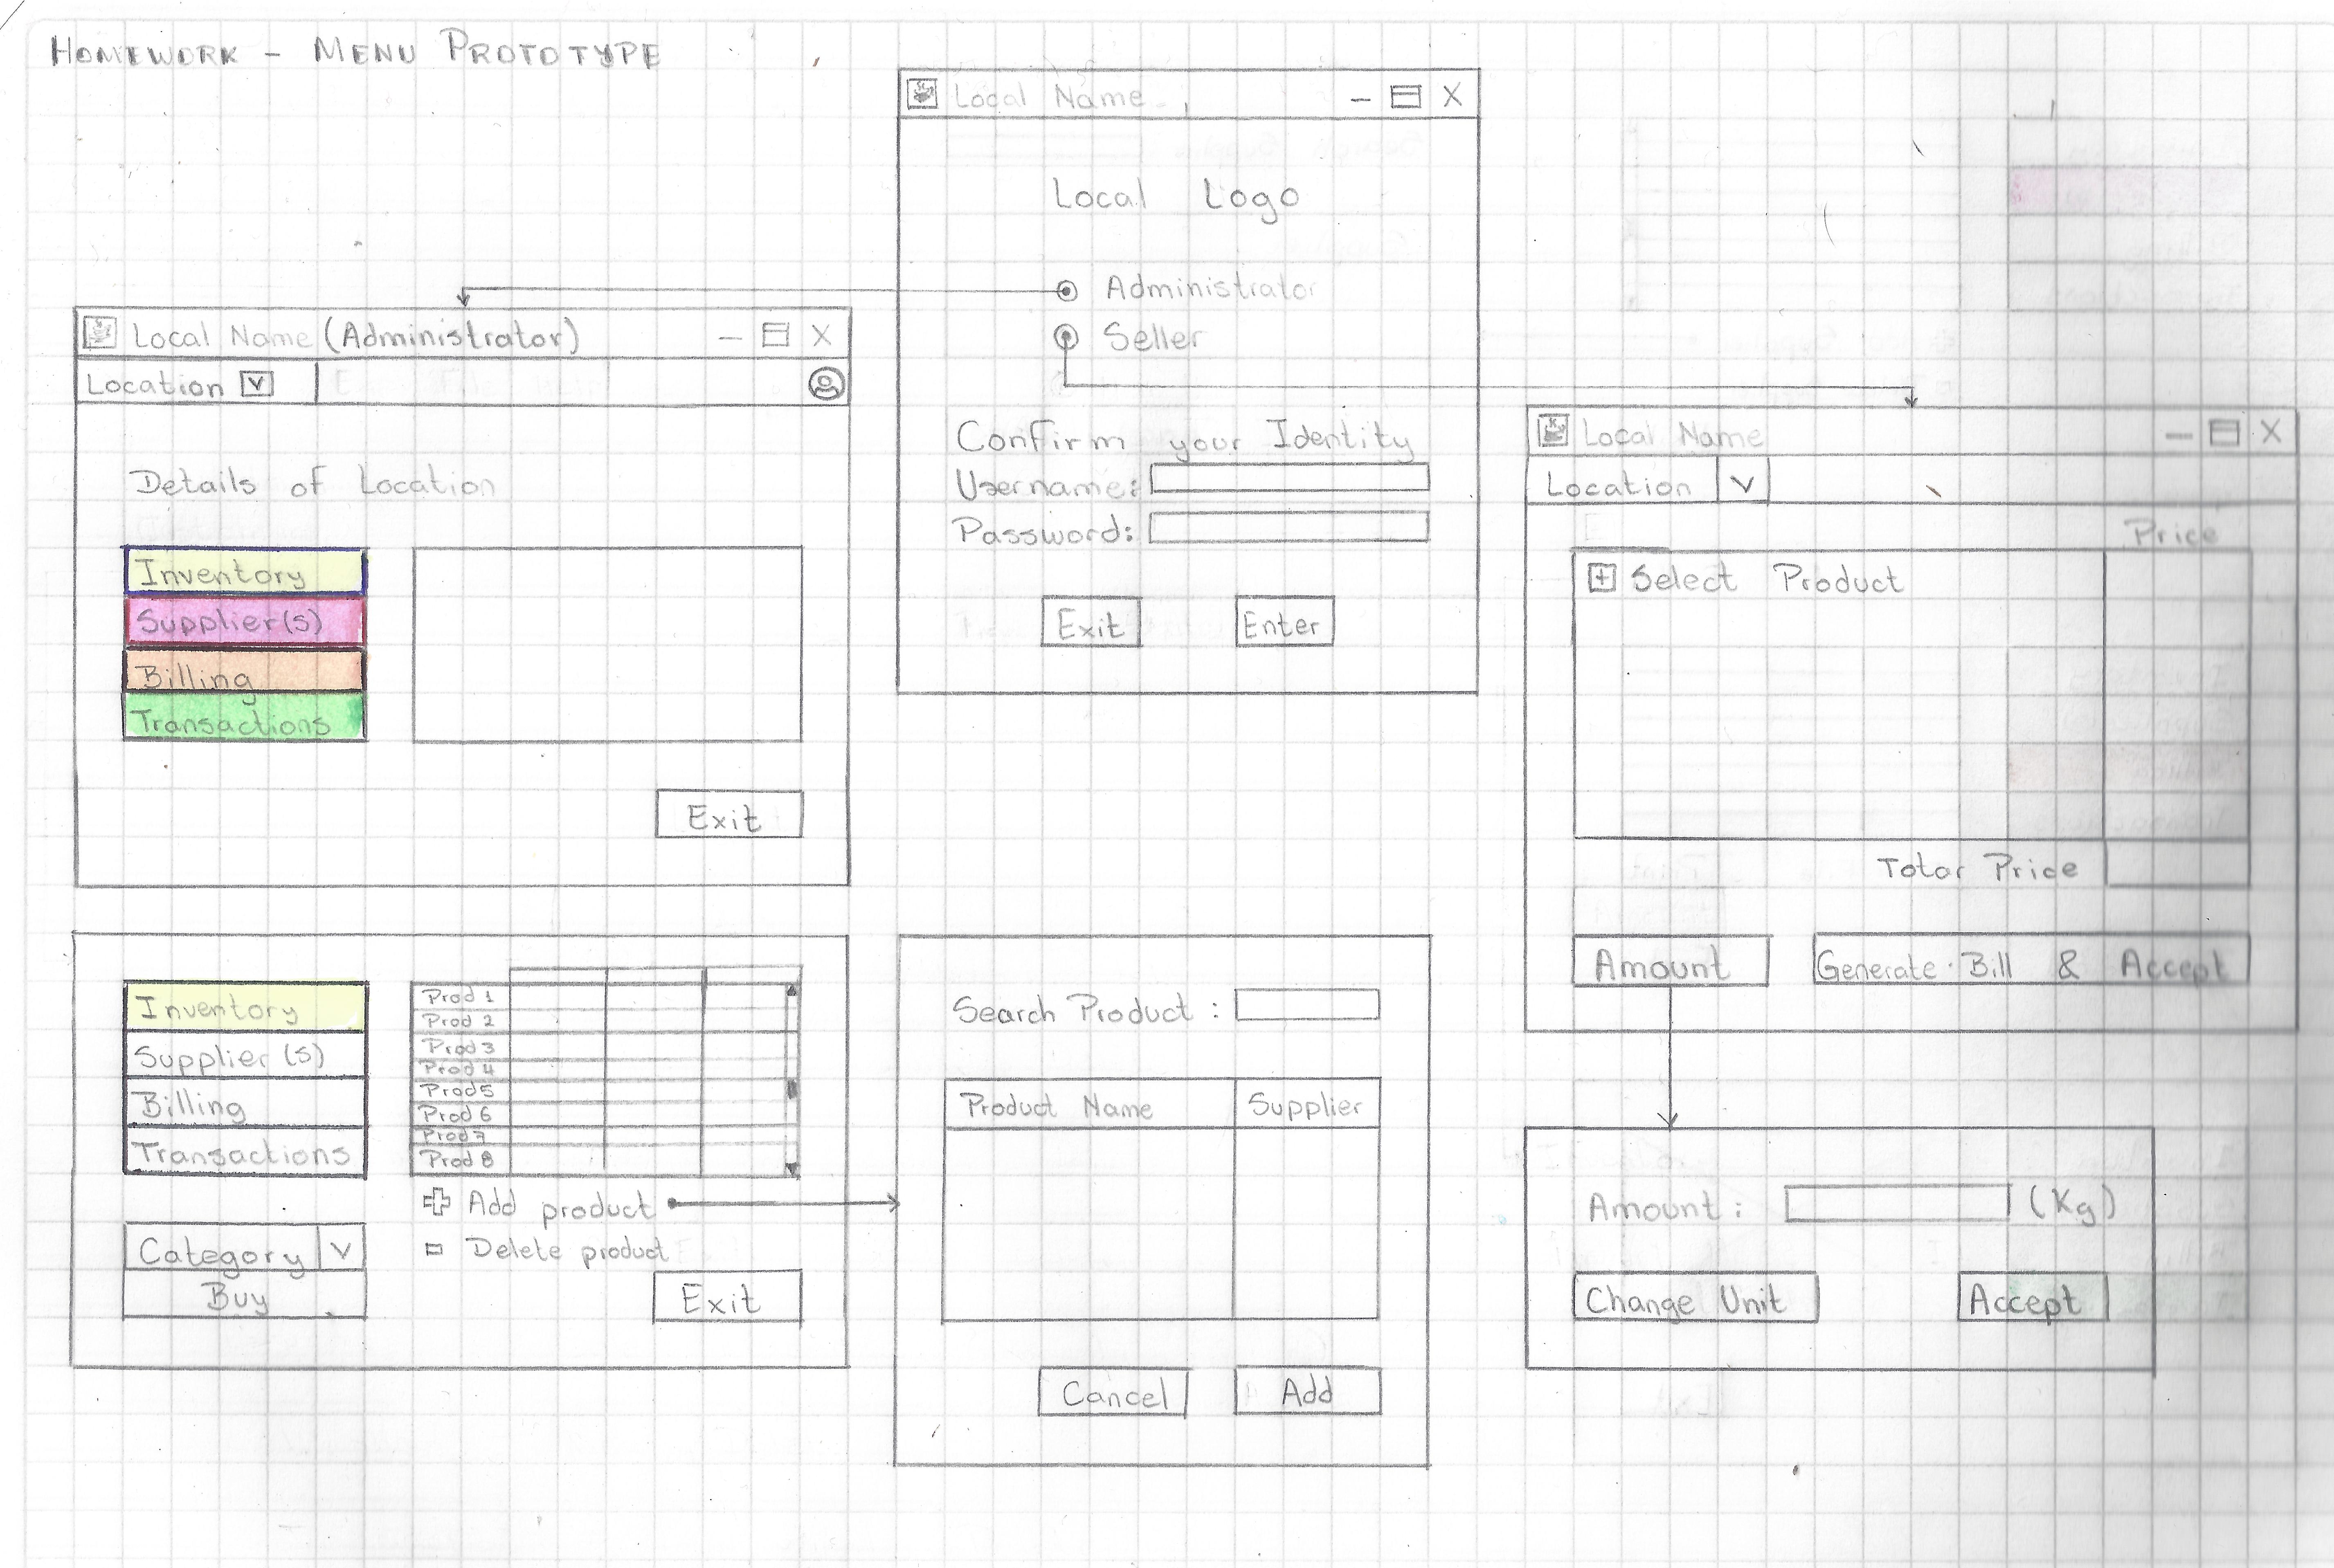 HOMEWORK - MENU PROTOTYPE
Local Name
Local Logo
Administrator
Seller
Confirm your Identity
Username:
Password:
Exit
Enter
Local Name (Administrator)
Location
Details of Location
Inventory
Supplier(s)
Billing
Transactions
Exit
Local Name
Location
Price
Select Product
Total Price
Amount
Generate Bill & Accept
Inventory
Supplier(s)
Billing
Transactions
Category
Buy
Prod 1
Prod 2
Prod 3
Prod 4
Prod 5
Prod 6
Prod 7
Prod 8
Add product
Delete product
Exit
Search Product:
Product Name Supplier
Cancel
Add
Amount: (Kg)
Change Unit
Accept